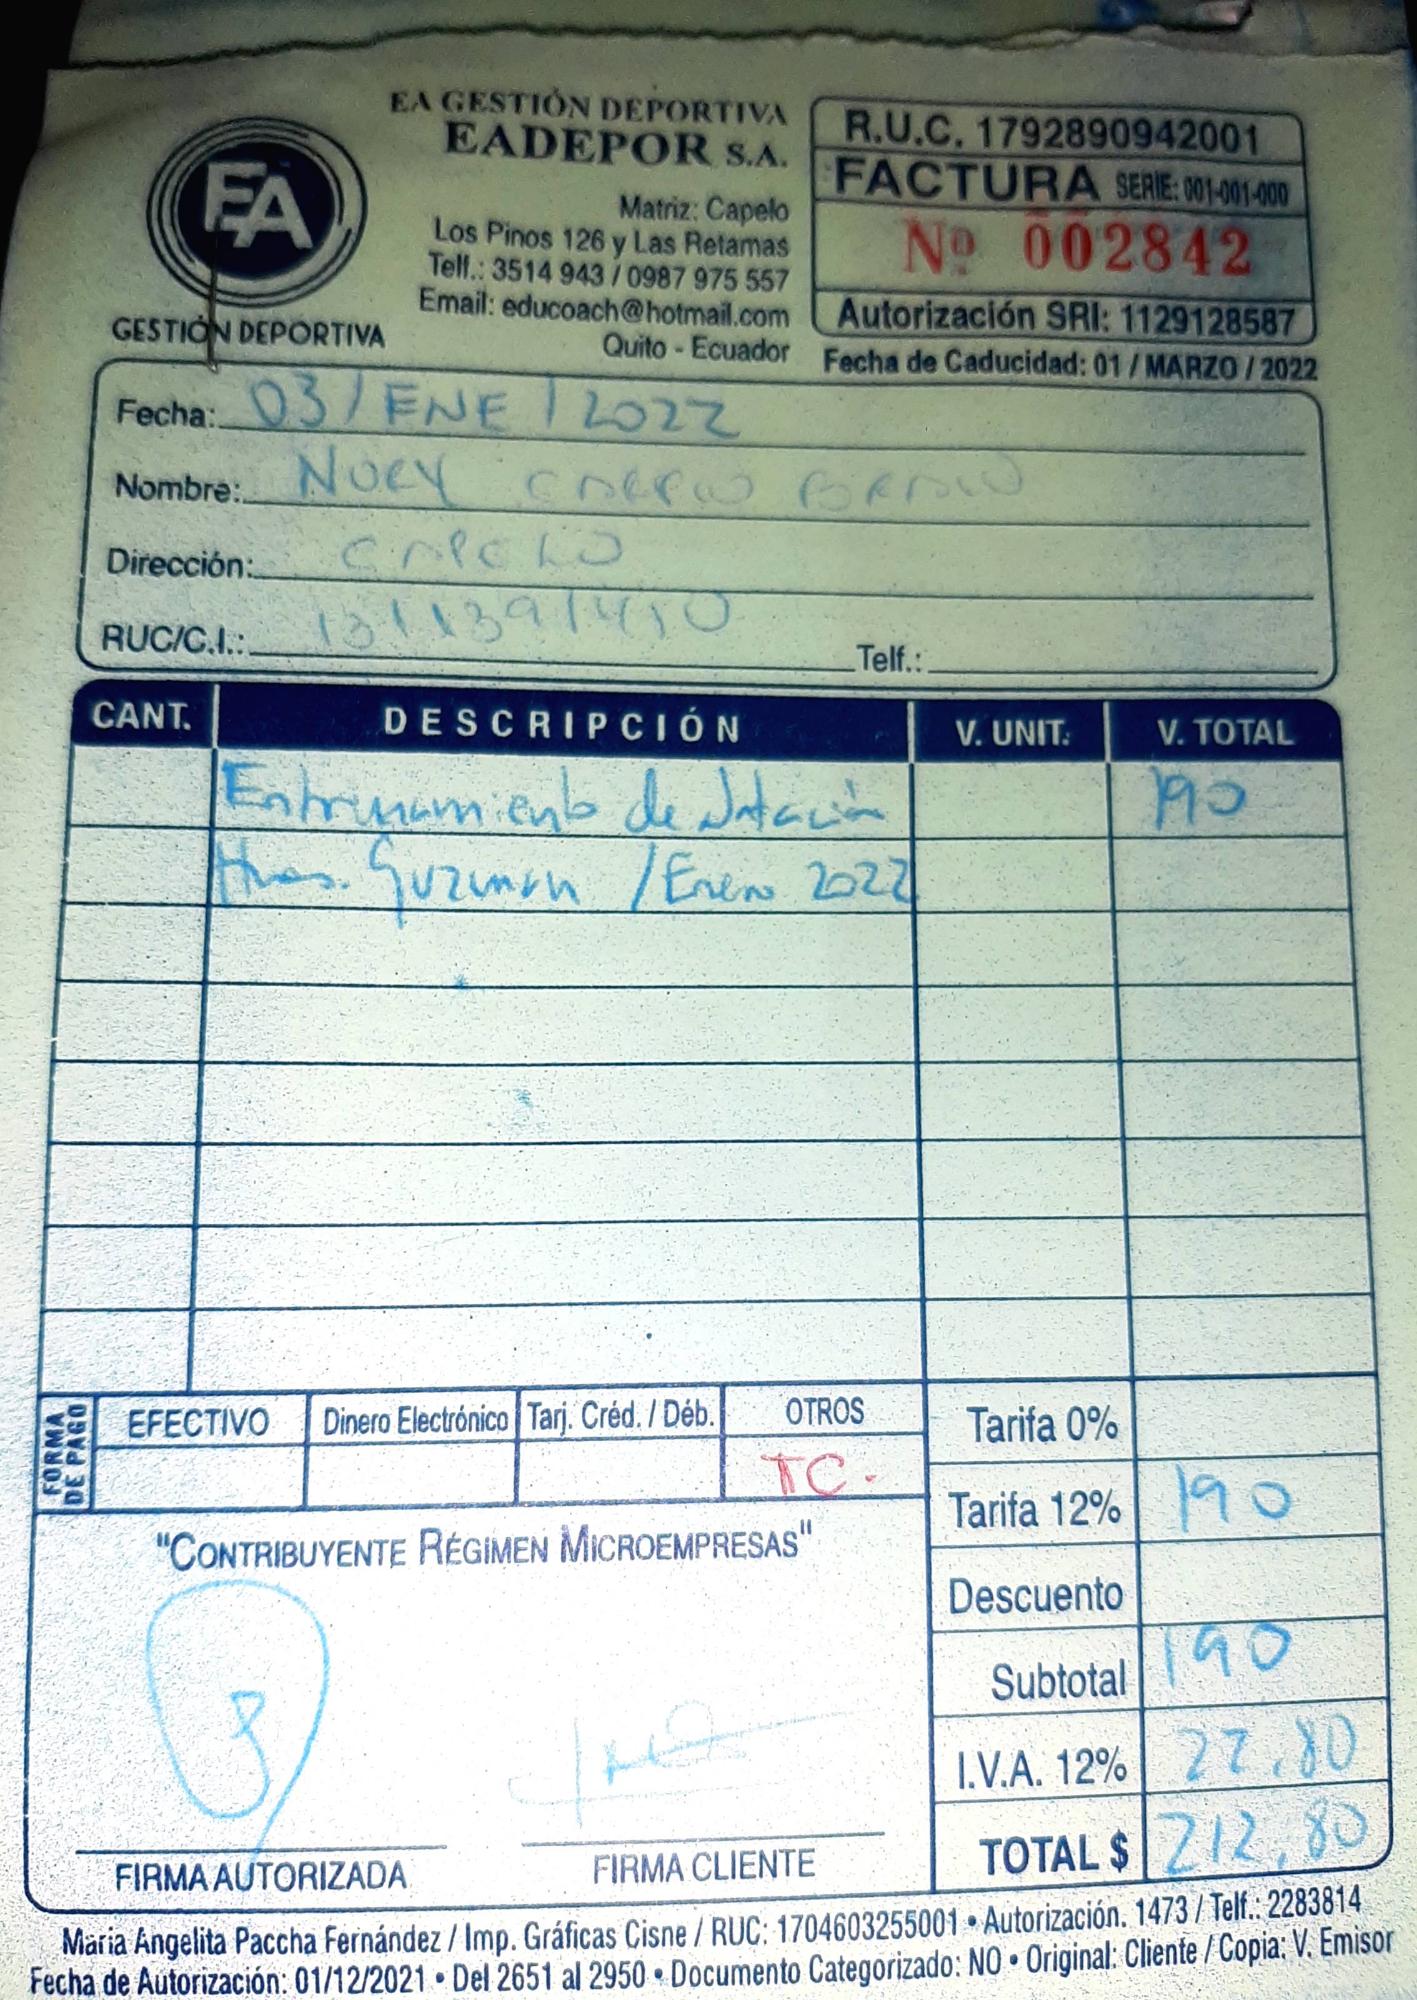 EA
GESTIÓN DEPORTIVA
EA GESTIÓN DEPORTIVA
EADEPOR S.A.
Matriz: Capelo
Los Pinos 126 y Las Retamas
Telf.: 3514 943 / 0987 975 557
Email: educoach@hotmail.com
Quito - Ecuador
R.U.C. 1792890942001
FACTURA SERIE: 001-001-000
Nº 002842
Autorización SRI: 1129128587
Fecha de Caducidad: 01 / MARZO / 2022
Fecha: 03/ENE/2022
Nombre:
Dirección: CAPELO
RUC/C.I.: 1311391410 Telf.:
CANT. DESCRIPCIÓN V. UNIT. V. TOTAL
Entrenamiento de Natación 190
Hnos. Guzman / Enero 2022
FORMA DE PAGO
EFECTIVO Dinero Electrónico Tarj. Créd. / Déb. OTROS
TC.
Tarifa 0%
Tarifa 12% 190
Descuento
Subtotal 190
I.V.A. 12% 22,80
TOTAL $ 212,80
"CONTRIBUYENTE RÉGIMEN MICROEMPRESAS"
FIRMA AUTORIZADA FIRMA CLIENTE
Maria Angelita Paccha Fernández / Imp. Gráficas Cisne / RUC: 1704603255001 • Autorización. 1473 / Telf.: 2283814
Fecha de Autorización: 01/12/2021 • Del 2651 al 2950 • Documento Categorizado: NO • Original: Cliente / Copia: V. Emisor